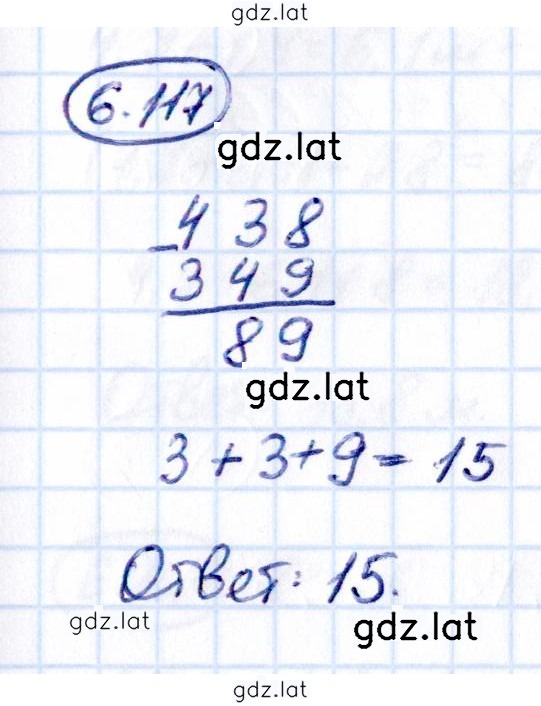 gdz.lat
6.117
gdz.lat
- 4 3 8
3 4 9
8 9
gdz.lat
3 + 3 + 9 = 15
Ответ: 15.
gdz.lat
gdz.lat
gdz.lat